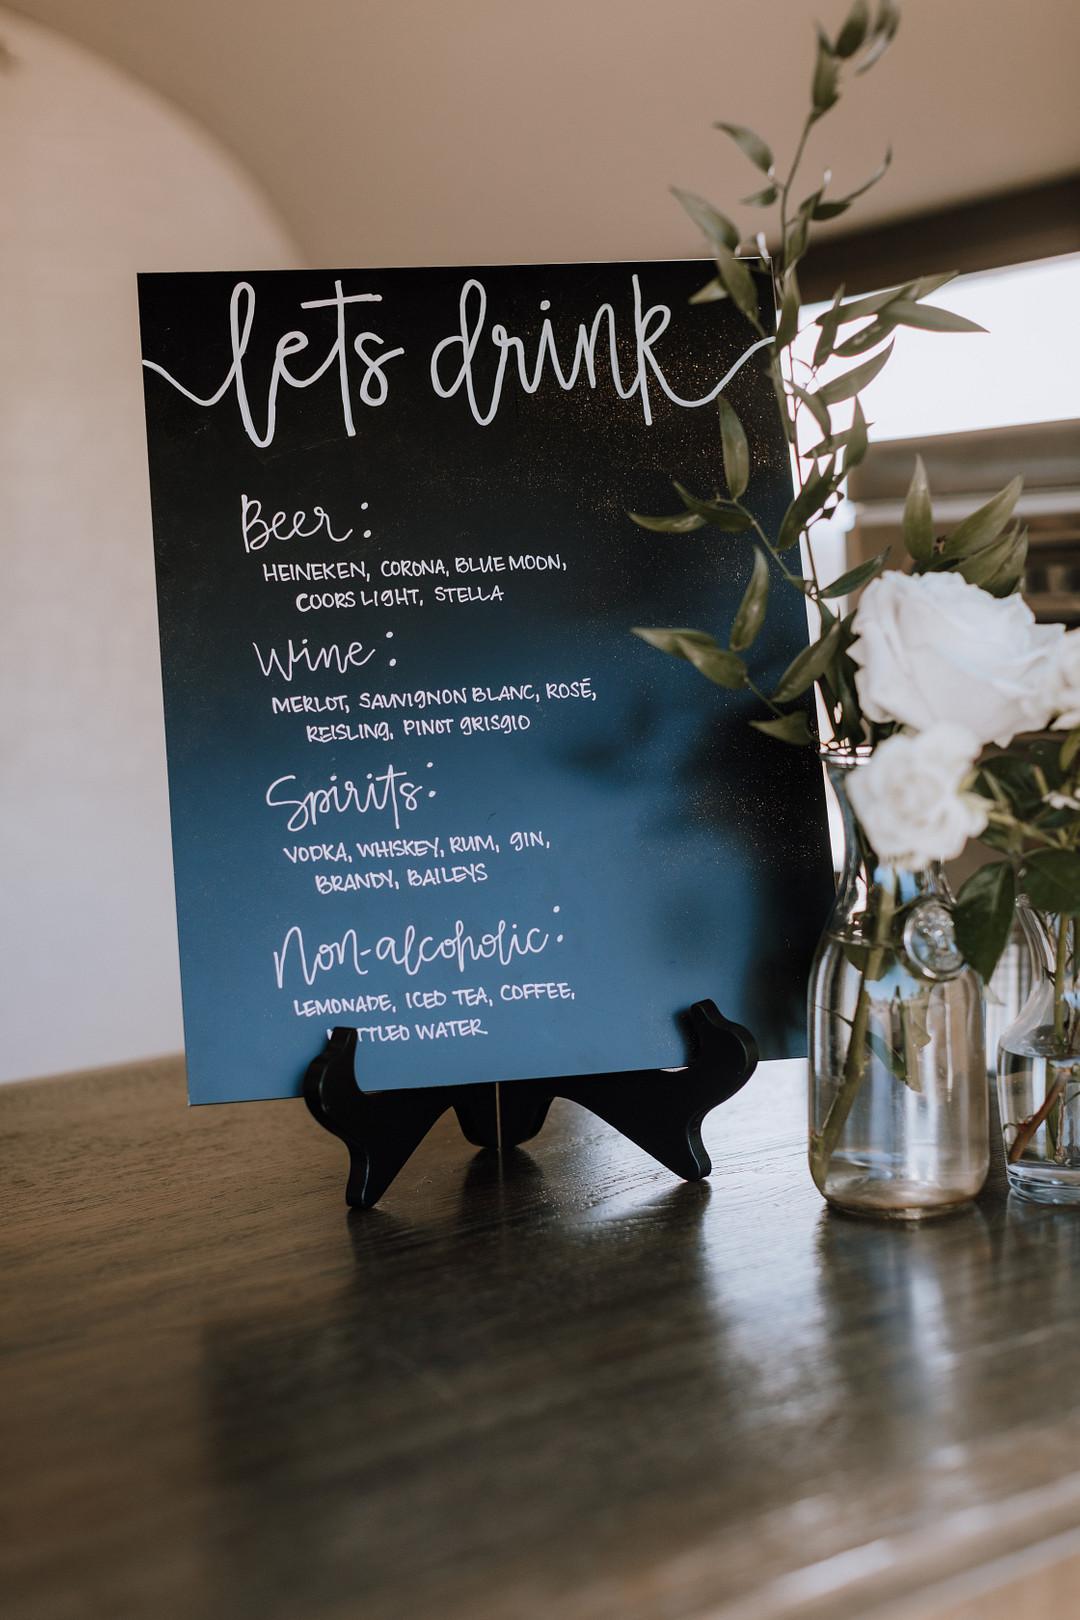 lets drink
Beer:
HEINEKEN, CORONA, BLUE MOON,
COORS LIGHT, STELLA
Wine:
MERLOT, SAUVIGNON BLANC, ROSÉ,
REISLING, PINOT GRISGIO
Spirits:
VODKA, WHISKEY, RUM, GIN,
BRANDY, BAILEYS
Non-alcoholic:
LEMONADE, ICED TEA, COFFEE,
WATER